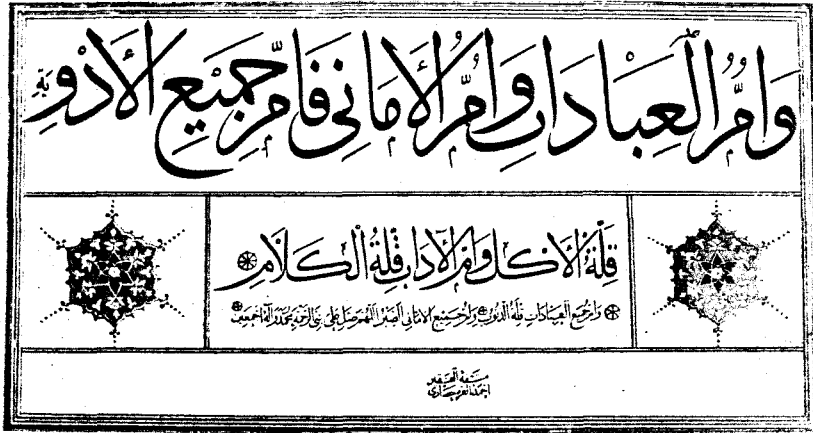 وَاُمُّ الْعِبَادَاتِ وَاُمُّ الْاَمَانِى فَاُمُّ جَمِيْعِ الْاَدْوِيَةِ
قِلَّةُ الْاَكْلِ وَاُمُّ الْاٰدَابِ قِلَّةُ الْكَلَامِ
وَاُمُّ جَمِيعِ الْعِبَادَاتِ قِلَّةُ الذُّنُوبِ وَاُمُّ جَمِيعِ الْاَمَانِى الصَّبْرُ اَللّٰهُمَّ صَلِّ عَلٰى نَبِىِّ الرَّحْمَةِ مُحَمَّدٍ وَاٰلِهٖ اَجْمَعِينَ